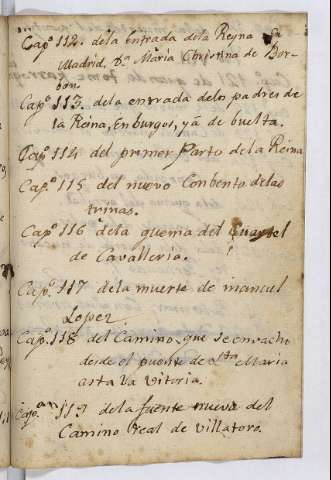 Capº 112. dela Entrada dela Reyna En
Madrid, Dª Maria Christina de Bor-
bon.
Capº 113. de la entrada delos padres de
la Reina, En burgos, yã de buelta.
Capº 114 del primer Parto de la Reina
Capº 115 del nuevo Conbento delas
trinas.
Capº 116 dela quema del quartel
de Cavalleria.
Capº. 117 dela muerte de manuel
Lopez.
Capº. 118 del Camino, que se envacho
desde el puente de Sta Maria
asta la vitoria.
Capº. 119 dela fuente nueva del
Camino Real de villatoro.